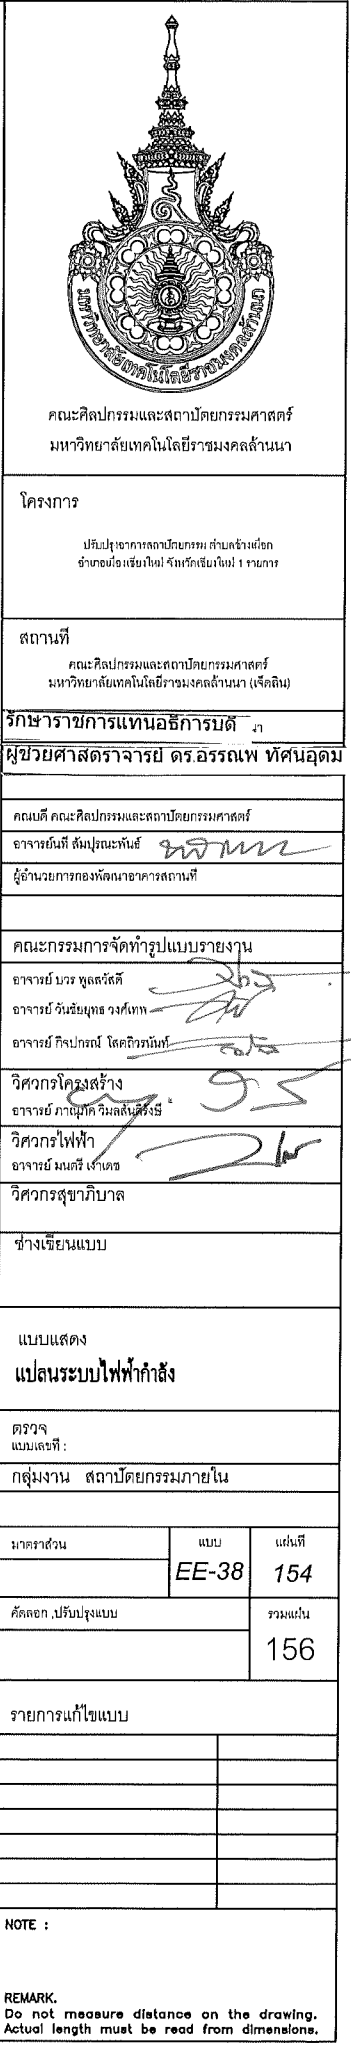 มหาวิทยาลัยเทคโนโลยีราชมงคลล้านนา
คณะศิลปกรรมและสถาปัตยกรรมศาสตร์
มหาวิทยาลัยเทคโนโลยีราชมงคลล้านนา
โครงการ
ปรับปรุงอาคารสถาปัตยกรรม ตำบลช้างเผือก
อำเภอเมืองเชียงใหม่ จังหวัดเชียงใหม่ 1 รายการ
สถานที่
คณะศิลปกรรมและสถาปัตยกรรมศาสตร์
มหาวิทยาลัยเทคโนโลยีราชมงคลล้านนา (เจ็ดลิน)
รักษาราชการแทนอธิการบดี
ผู้ช่วยศาสตราจารย์ ดร.อรรณพ ทัศนอุดม
คณบดี คณะศิลปกรรมและสถาปัตยกรรมศาสตร์
อาจารย์นที สัมปุรณะพันธ์
ผู้อำนวยการกองพัฒนาอาคารสถานที่
คณะกรรมการจัดทำรูปแบบรายงาน
อาจารย์ บวร พูลสวัสดิ์
อาจารย์ วันชัยยุทธ วงศ์เทพ
อาจารย์ กิจปกรณ์ โสตถิวรนันท์
วิศวกรโครงสร้าง
อาจารย์
วิศวกรไฟฟ้า
อาจารย์ มนตรี เงาเดช
วิศวกรสุขาภิบาล
ช่างเขียนแบบ
แบบแสดง
แปลนระบบไฟฟ้ากำลัง
ตรวจ
แบบเลขที่ :
กลุ่มงาน สถาปัตยกรรมภายใน
มาตราส่วน แบบ แผ่นที่
EE-38 154
คัดลอก ,ปรับปรุงแบบ รวมแผ่น
156
รายการแก้ไขแบบ
NOTE :
REMARK.
Do not measure distance on the drawing.
Actual length must be read from dimensions.